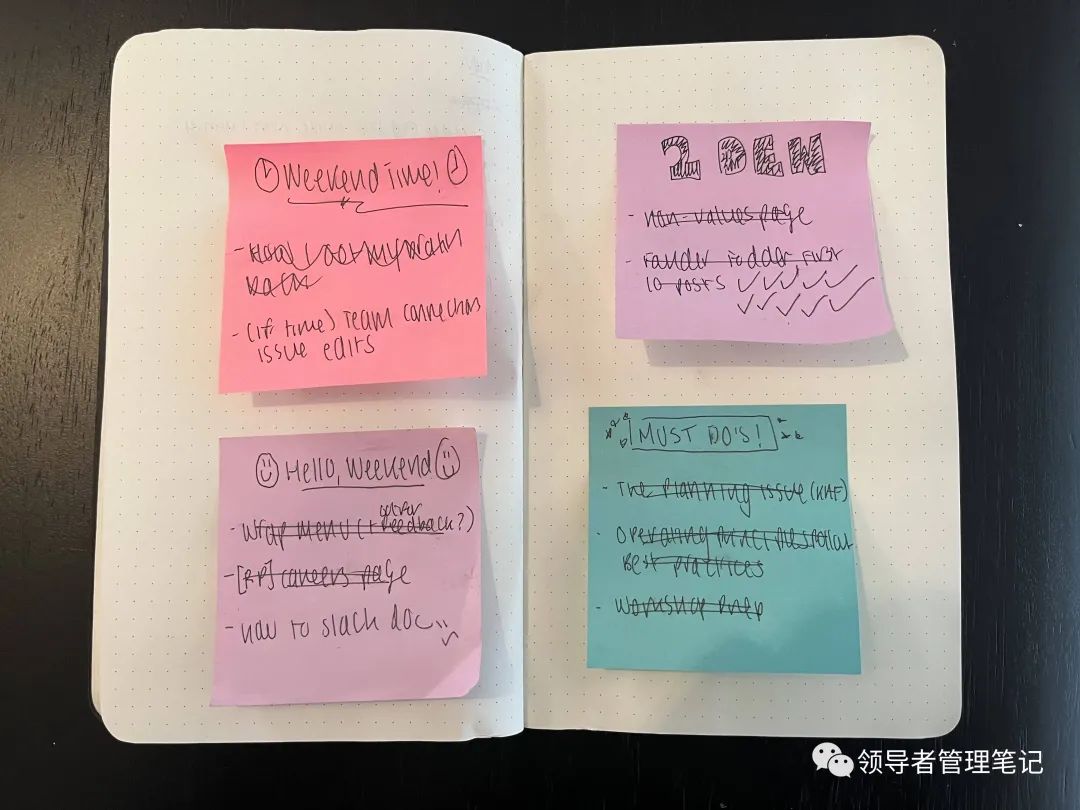 Weekend Time!
- (if time) Team connections
issue edits
Hello, Weekend
gather
- Wrap menu (+ feedback?)
- [RP] careers page
- how to slack doc
2 DEW
- non-values page
- Fander Fodder First
10 posts
MUST DO'S!
- The Planning issue (KHF)
- Operating
Best practices
- Workshop Prep
领导者管理笔记